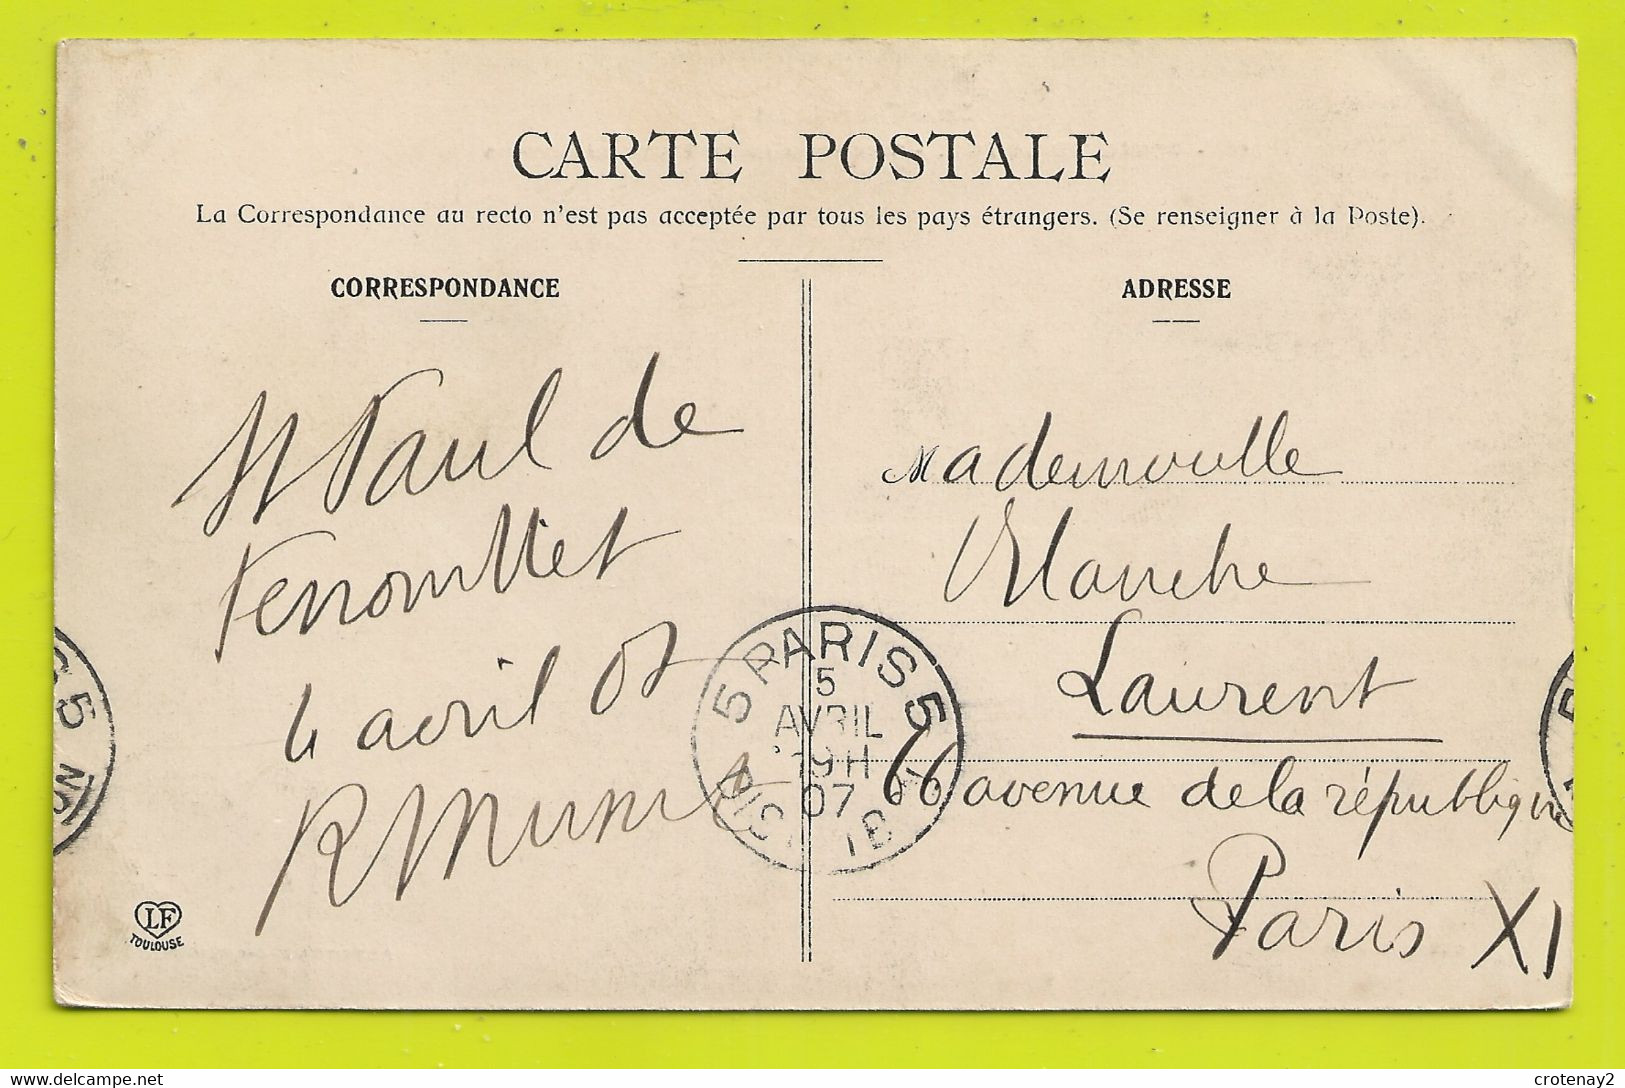 CARTE POSTALE
La Correspondance au recto n'est pas acceptée par tous les pays étrangers. (Se renseigner à la Poste).
CORRESPONDANCE
St Paul de
Fenouillet
4 avril 07
R
LF
TOULOUSE
ADRESSE
Mademoiselle
Blanche
Laurent
66 avenue de la république
Paris XI
5 PARIS 5
5
AVRIL
19H
07
DISTRIB
5
crotenay2